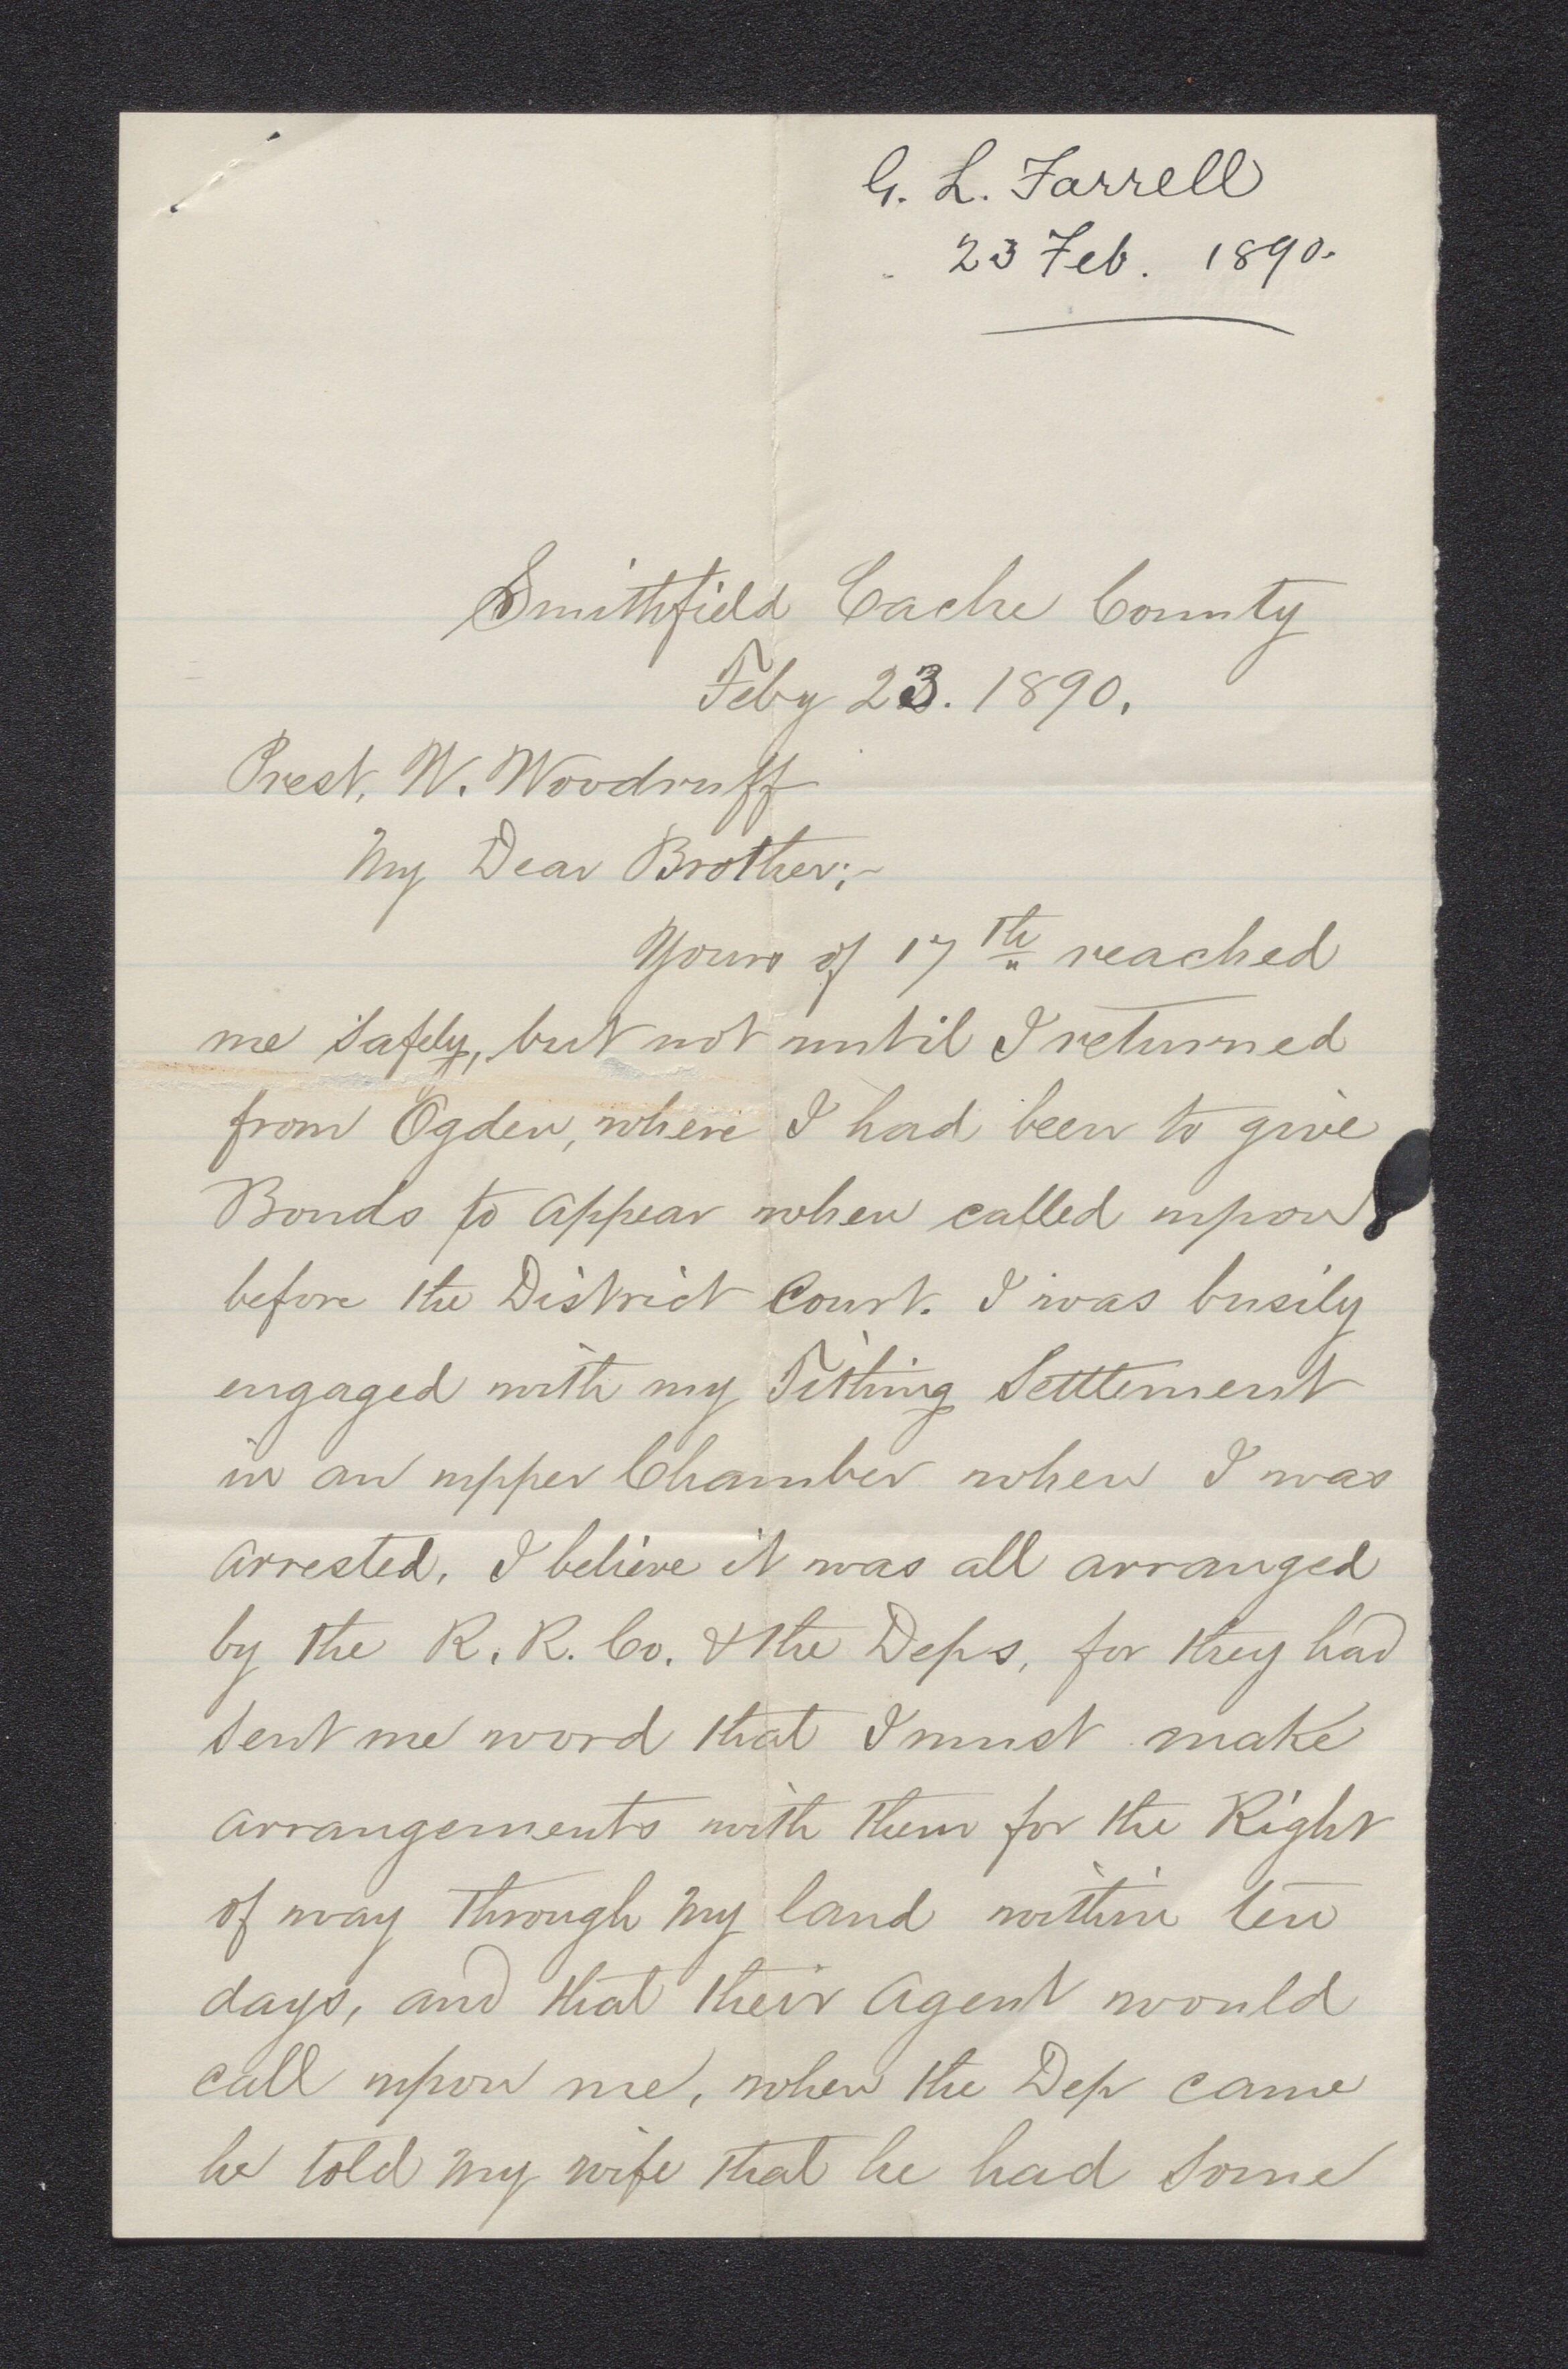 G. L. Farrell
23 Feb. 1890.
Smithfield Cache County
Feby 23. 1890.
Prest. W. Woodruff
My Dear Brother;-
Yours of 17th reached
me safely, but not until I returned
from Ogden, where I had been to give
Bonds to appear when called upon
before the District Court. I was busily
engaged with my Tithing Settlement
in an upper Chamber when I was
arrested. I believe it was all arranged
by the R. R. Co. & the Deps, for they had
sent me word that I must make
arrangements with them for the Right
of way through my land within ten
days, and that their agent would
call upon me, when the Dep came
he told my wife that he had some